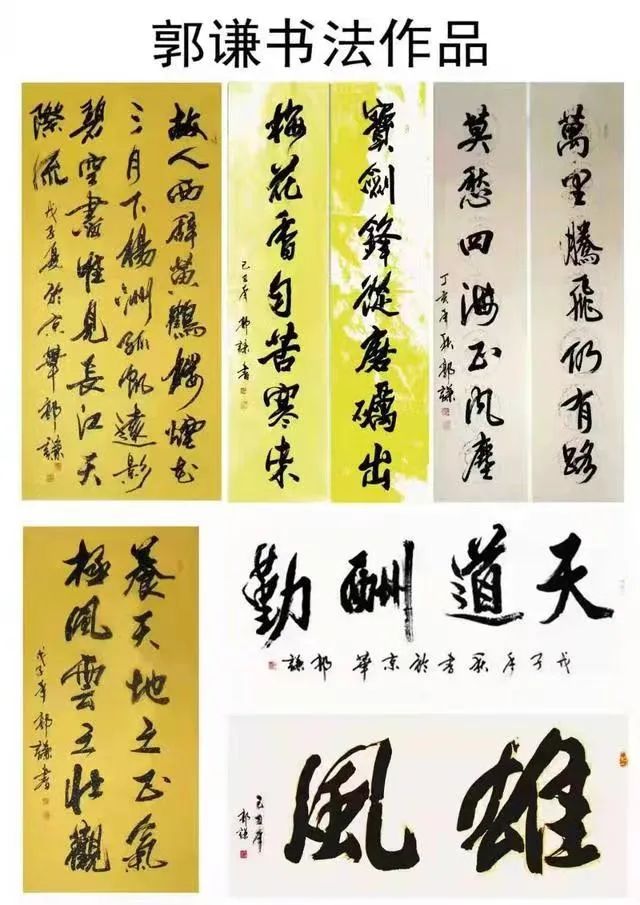 郭谦书法作品
故人西辭黄鶴樓煙花
三月下楊洲孤帆遠影
碧空盡唯見長江天
際流
戊子夏於京華郭謙
寶劍鋒從磨礪出
梅花香自苦寒来
己丑年 郭謙書
萬里騰飛仍有路
莫愁四海正風塵
丁亥年秋郭謙
養天地之正氣
極風雲之壯觀
戊子年郭謙書
天道酬勤
戊子年夏書於京華 郭謙
雄風
己丑年
郭謙